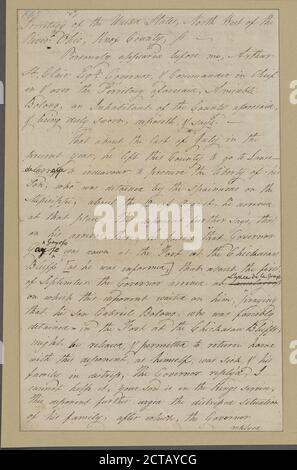 Territory of the United States, North West of the
River Ohio, Knox County, ss
Personally appeared before me, Arthur
St. Clair Esqr. Governor, & Commander in Chief
in & over the Territory aforesaid, Amiable
Bolong, an Inhabitant of the County aforesaid
& being duly sworn, deposeth & saith.
That about the last of July, in the
present year, he left this County to go to
to endeavour to procure the liberty of his
Son, who was detained by the Spaniards on the
Mississippi, about the
at that place, the deponent further says, that
on his arrival that Governor
Gayoso was down at the Post at the Chickasaw
Bluffs [as he was informed] that about the
of September the Governor arrived at
on which this deponent waited on him, praying
that his Son Gabriel Bolong, who was forcibly
detained in the Post at the Chickasaw Bluffs,
might be released & permitted to return home
with this deponent, as himself was sick & his
family in distress, the Governor replied, I
cannot help it, your Son is in the Kings Service,
this deponent further urged the distressed situation
of his family, after which, the Governor
replied
alamy
Image ID: 2CTAYCG
www.alamy.com